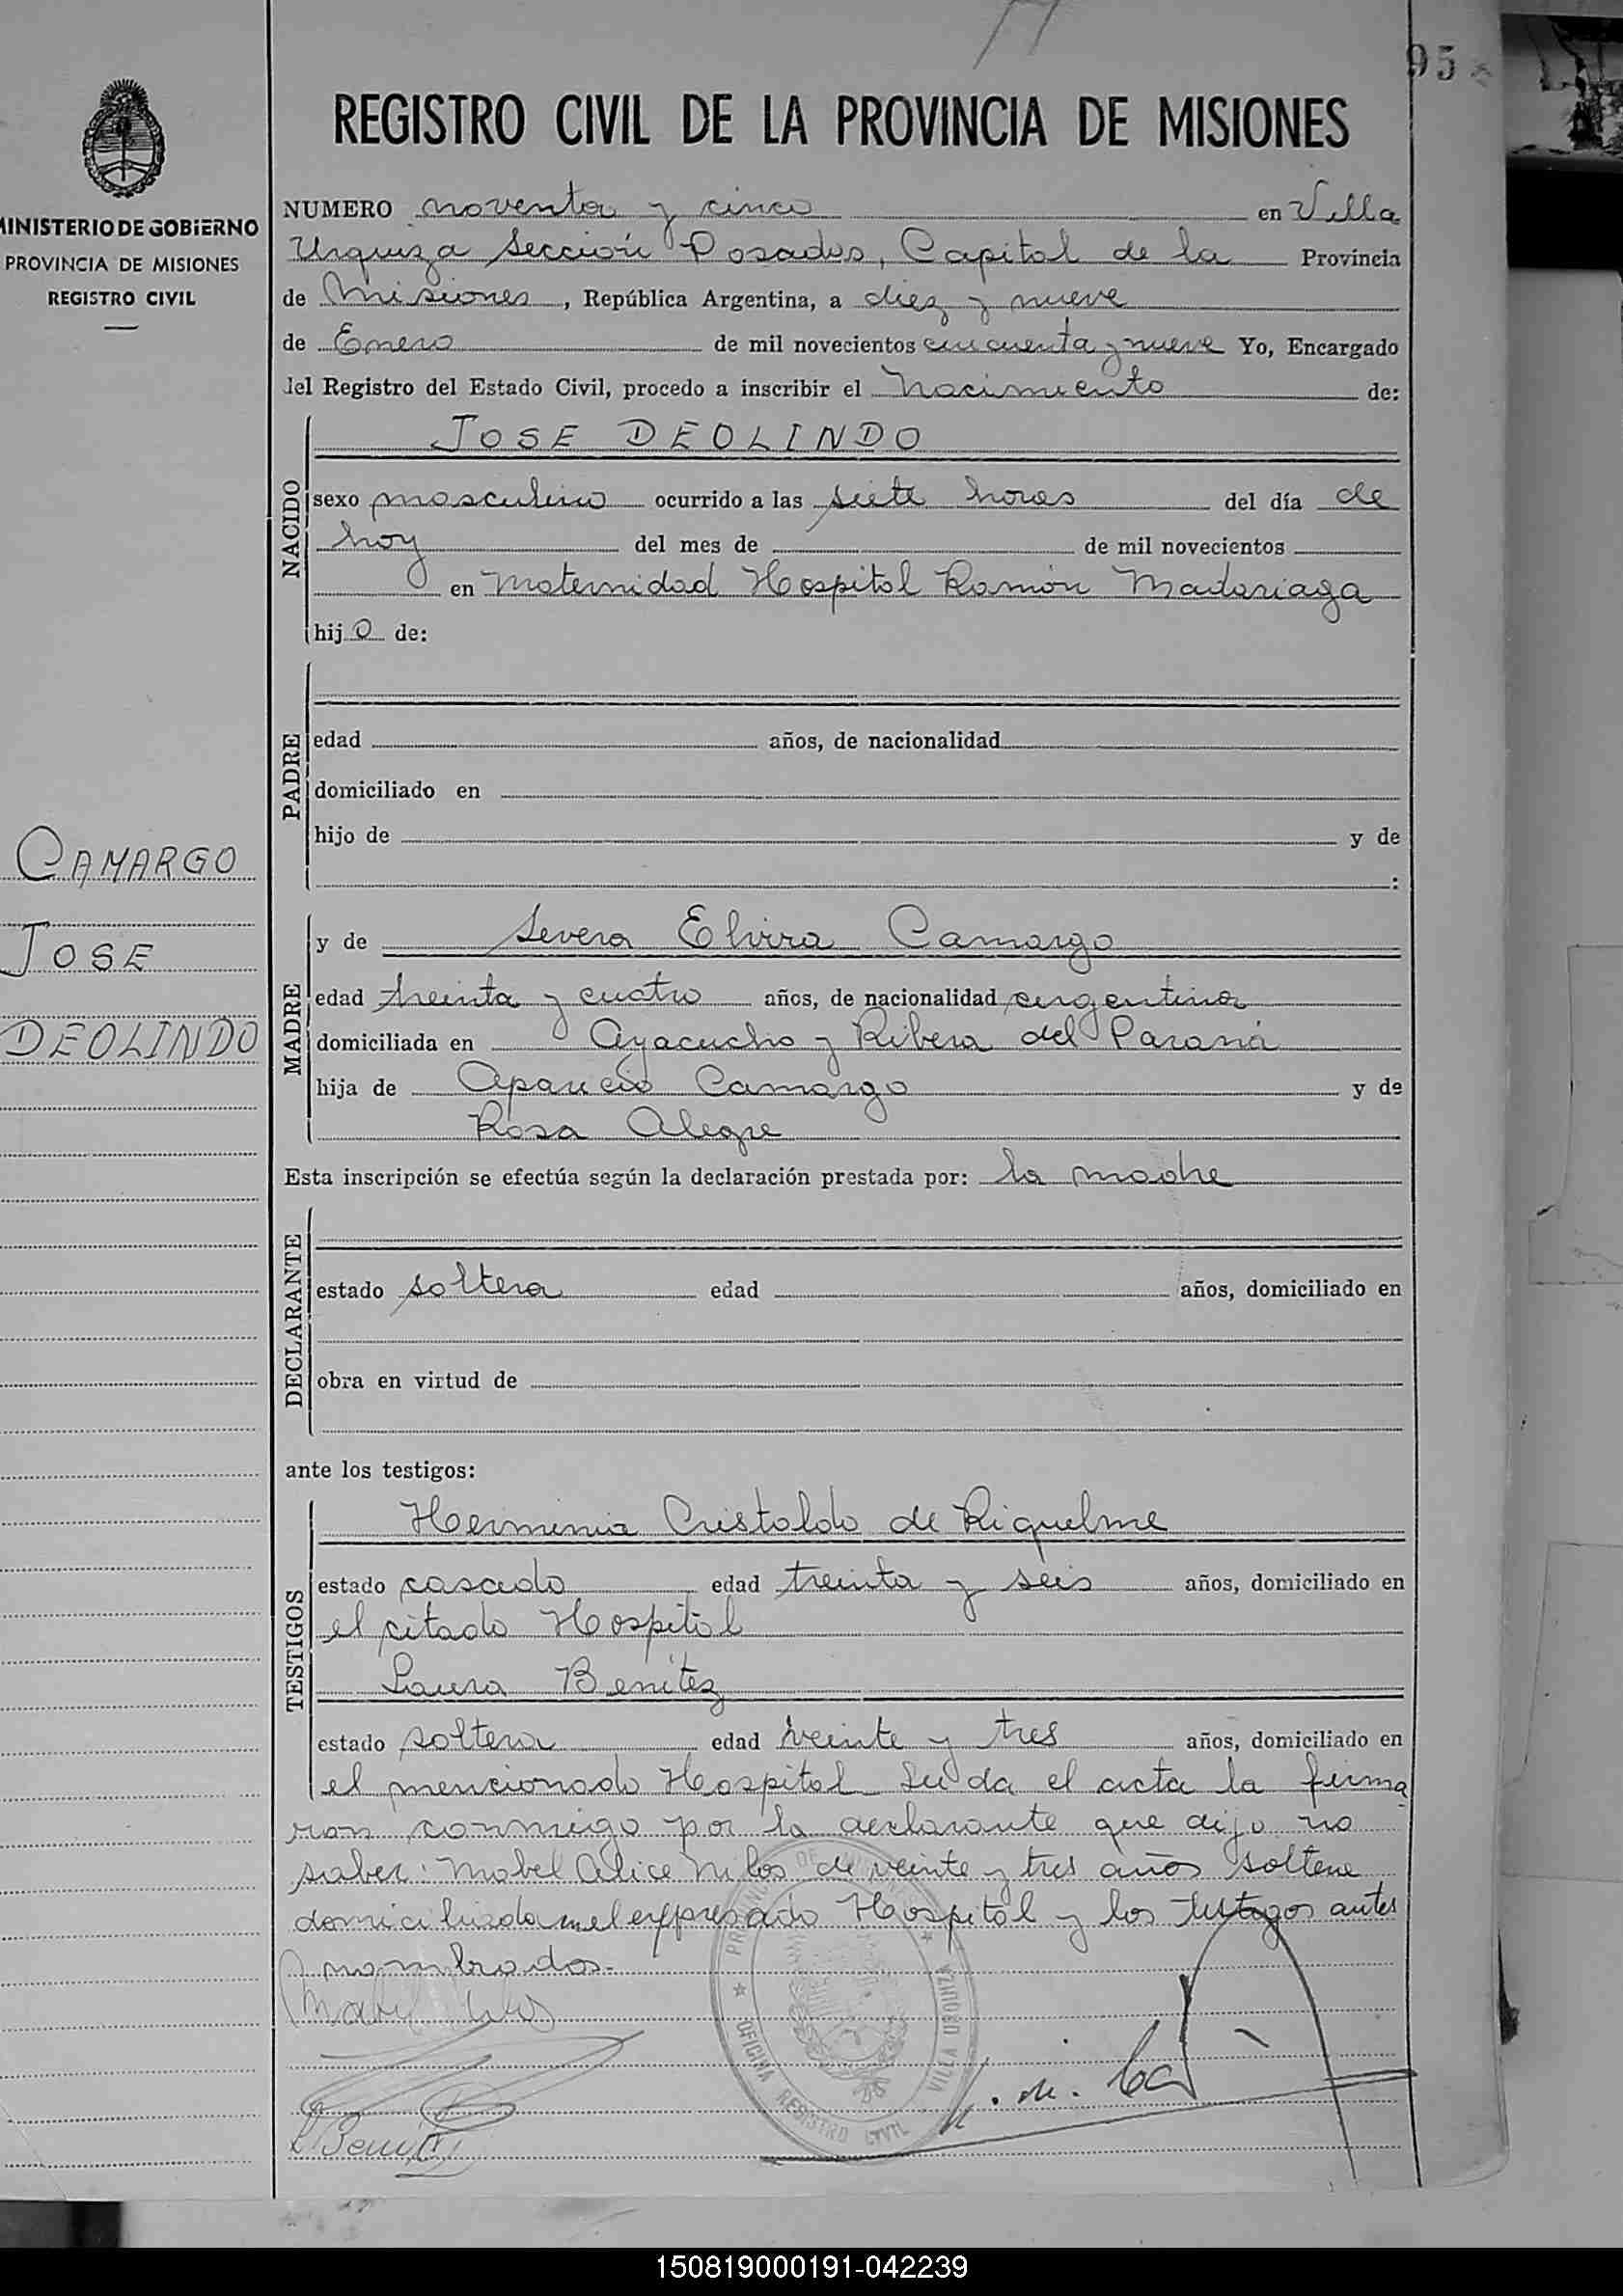 95
REGISTRO CIVIL DE LA PROVINCIA DE MISIONES
MINISTERIO DE GOBIERNO
PROVINCIA DE MISIONES
REGISTRO CIVIL
CAMARGO
JOSE
DEOLINDO
NUMERO noventa y cinco en Villa
Urquiza Sección Posadas, Capital de la Provincia
de Misiones, República Argentina, a diez y nueve
de Enero de mil novecientos cincuenta y nueve Yo, Encargado
del Registro del Estado Civil, procedo a inscribir el Nacimiento de:
NACIDO
JOSE DEOLINDO
sexo masculino ocurrido a las siete horas del día de
hoy del mes de de mil novecientos
en Maternidad Hospital Ramón Madariaga
hijo de:
PADRE
edad años, de nacionalidad
domiciliado en
hijo de y de
:
MADRE
y de Severa Elvira Camargo
edad treinta y cuatro años, de nacionalidad argentina
domiciliada en Ayacucho y Ribera del Paraná
hija de Aparicio Camargo y de
Rosa Alegre
Esta inscripción se efectúa según la declaración prestada por: la madre
DECLARANTE
estado soltera edad años, domiciliado en
obra en virtud de
ante los testigos:
TESTIGOS
Herminia Cristaldo de Riquelme
estado casada edad treinta y seis años, domiciliado en
el citado Hospital
Laura Benitez
estado soltera edad veinte y tres años, domiciliado en
el mencionado Hospital Leida el acta la firma
ron conmigo por la declarante que dijo no
saber: Mabel Alice de veinte y tres años soltera
domiciliada en el expresado Hospital y los testigos antes
nombrados.-
Mabel
L Benitez
PROVINCIA DE MISIONES
OFICINA REGISTRO CIVIL
VILLA URQUIZA
150819000191-042239